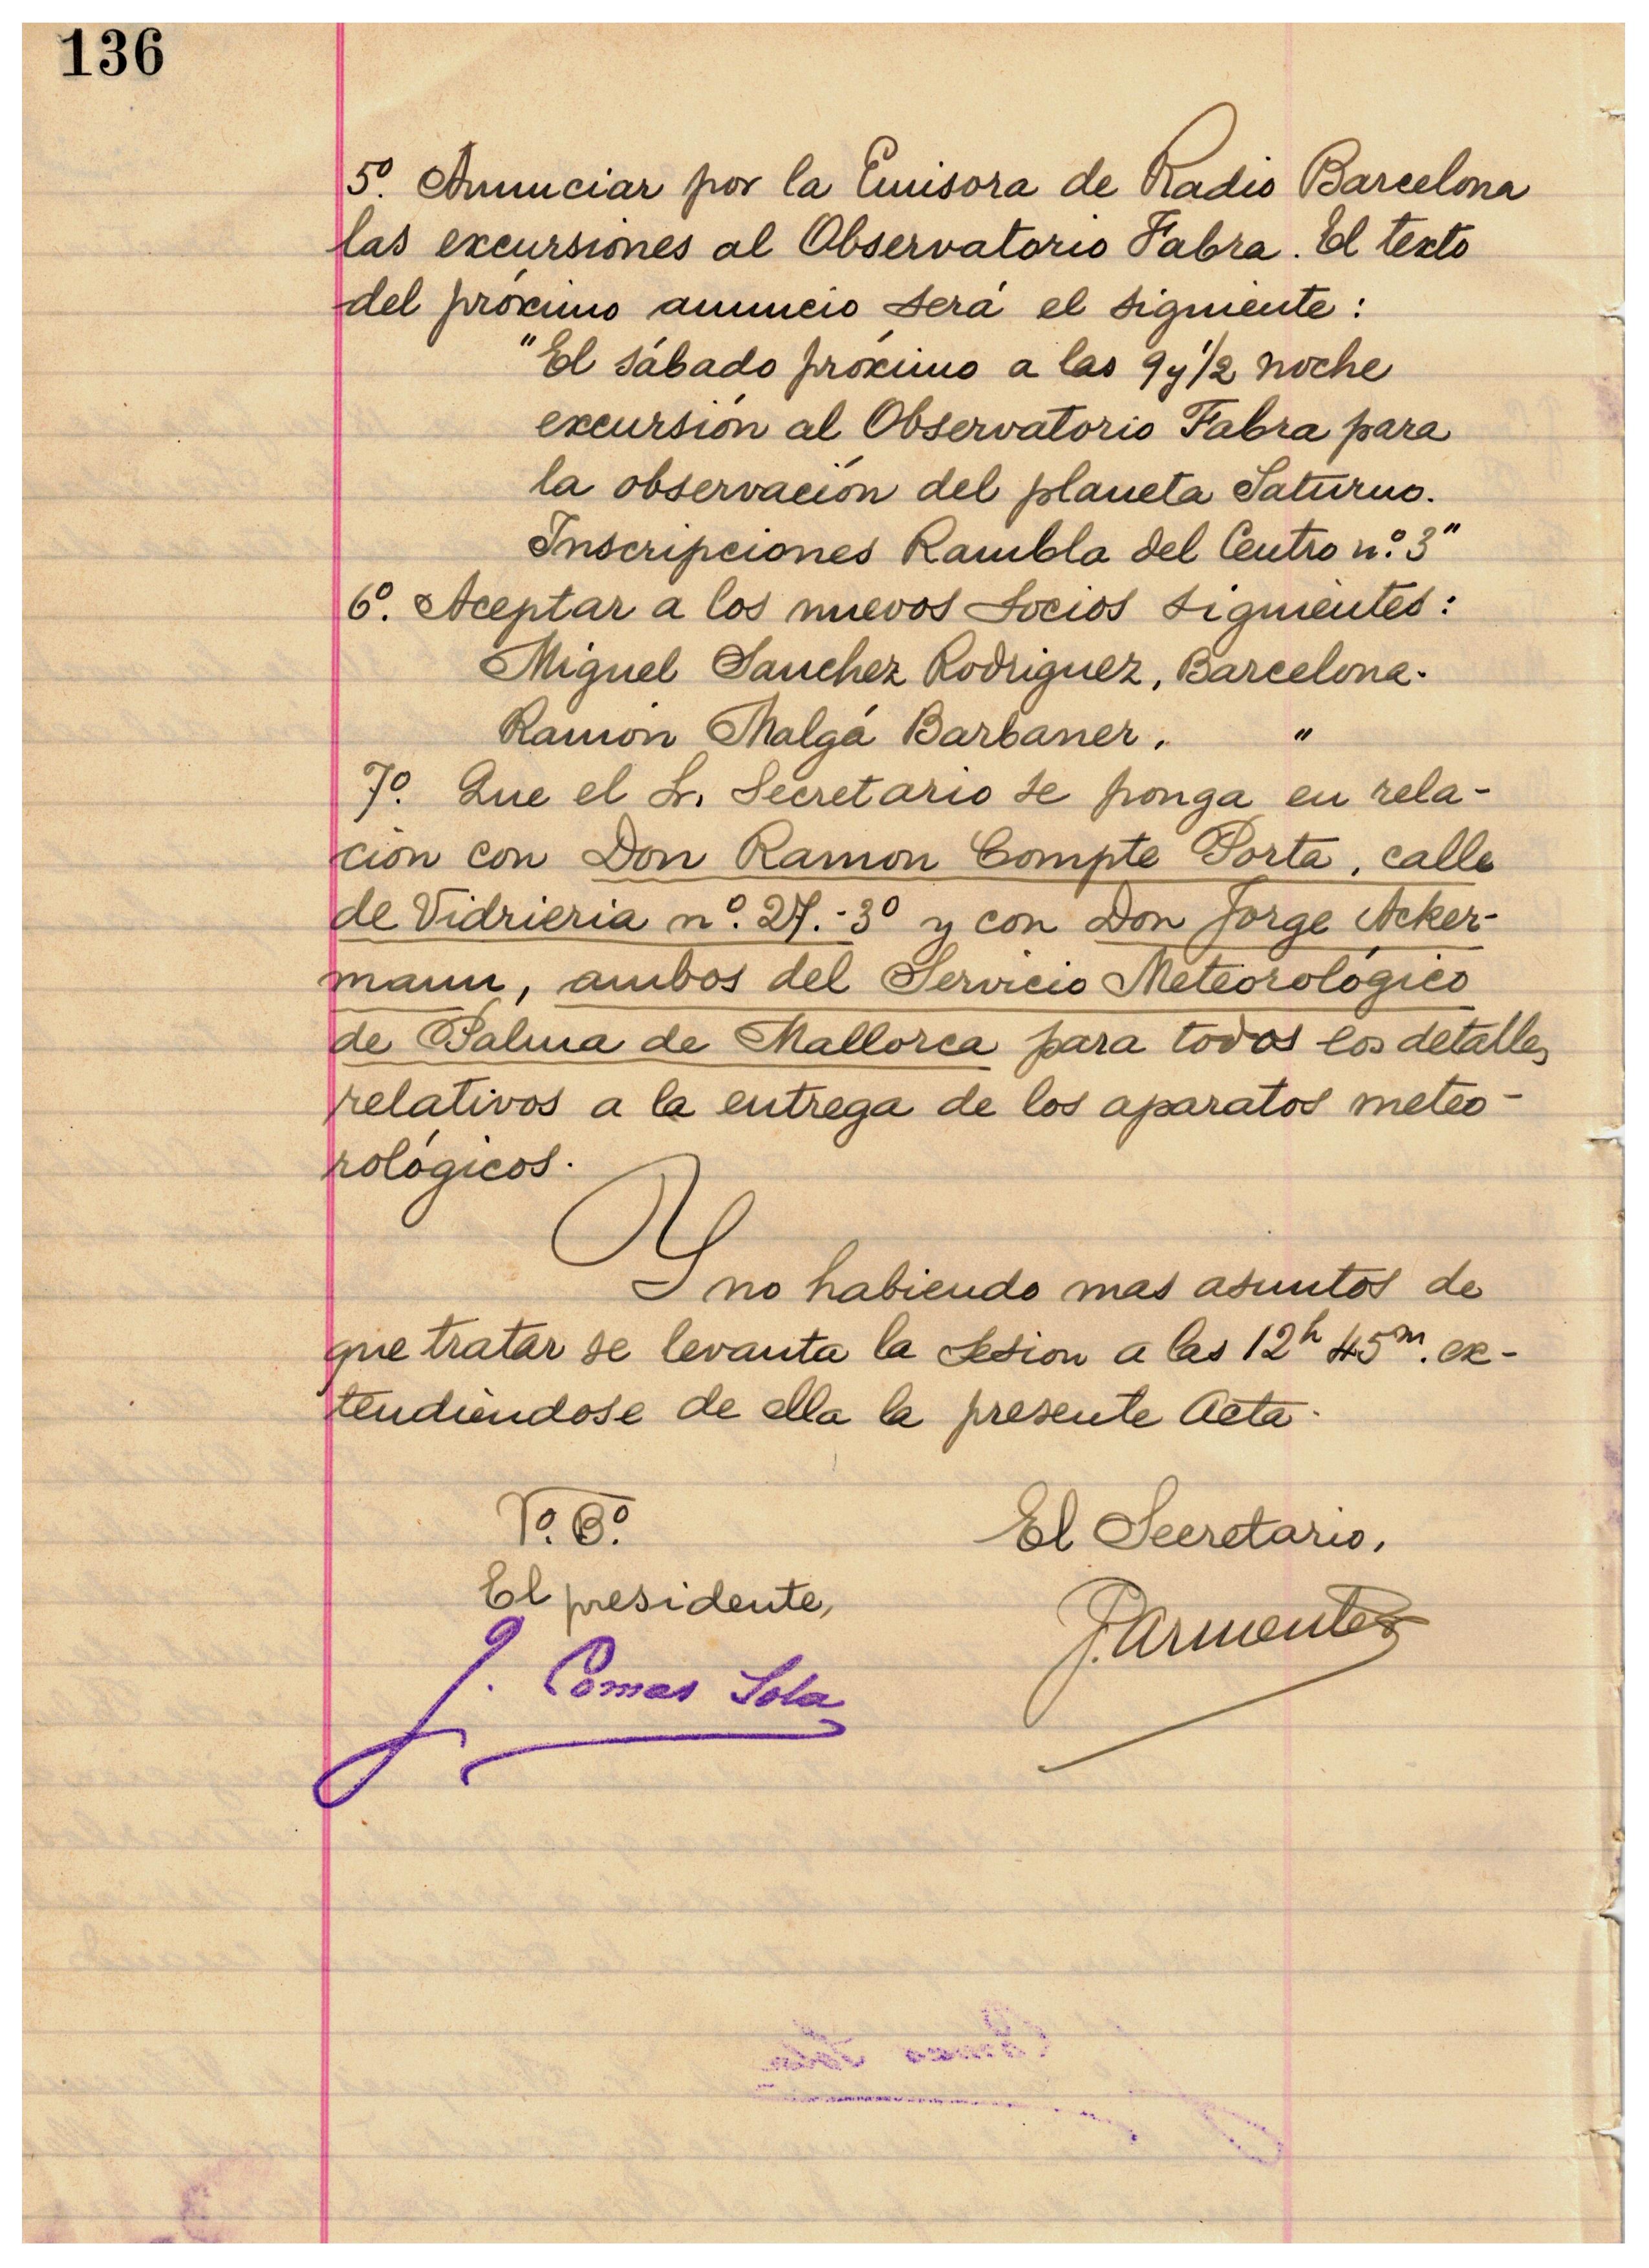 136
5º. Anunciar por la Emisora de Radio Barcelona
las excursiones al Observatorio Fabra. El texto
del próximo anuncio será el siguiente:
"El sábado próximo a las 9 y 1/2 noche
excursión al Observatorio Fabra para
la observación del planeta Saturno.
Inscripciones Rambla del Centro n.º 3"
6º. Aceptar a los nuevos socios siguientes:
Miguel Sanchez Rodriguez, Barcelona.
Ramón Malgá Barbaner. "
7º. Que el Sr. Secretario se ponga en rela-
ción con Don Ramon Compte Porta, calle
de Vidrieria nº. 27.-3º y con Don Jorge Acker-
mann, ambos del Servicio Meteorológico
de Palma de Mallorca para todos los detalles
relativos a la entrega de los aparatos meteo-
rológicos.
Y no habiendo mas asuntos de
que tratar se levanta la sesion a las 12h 45m. ex-
tendiéndose de ella la presente Acta.
Vº. Bº.
El Secretario,
El presidente,
J. Armenter
J. Comas Solà